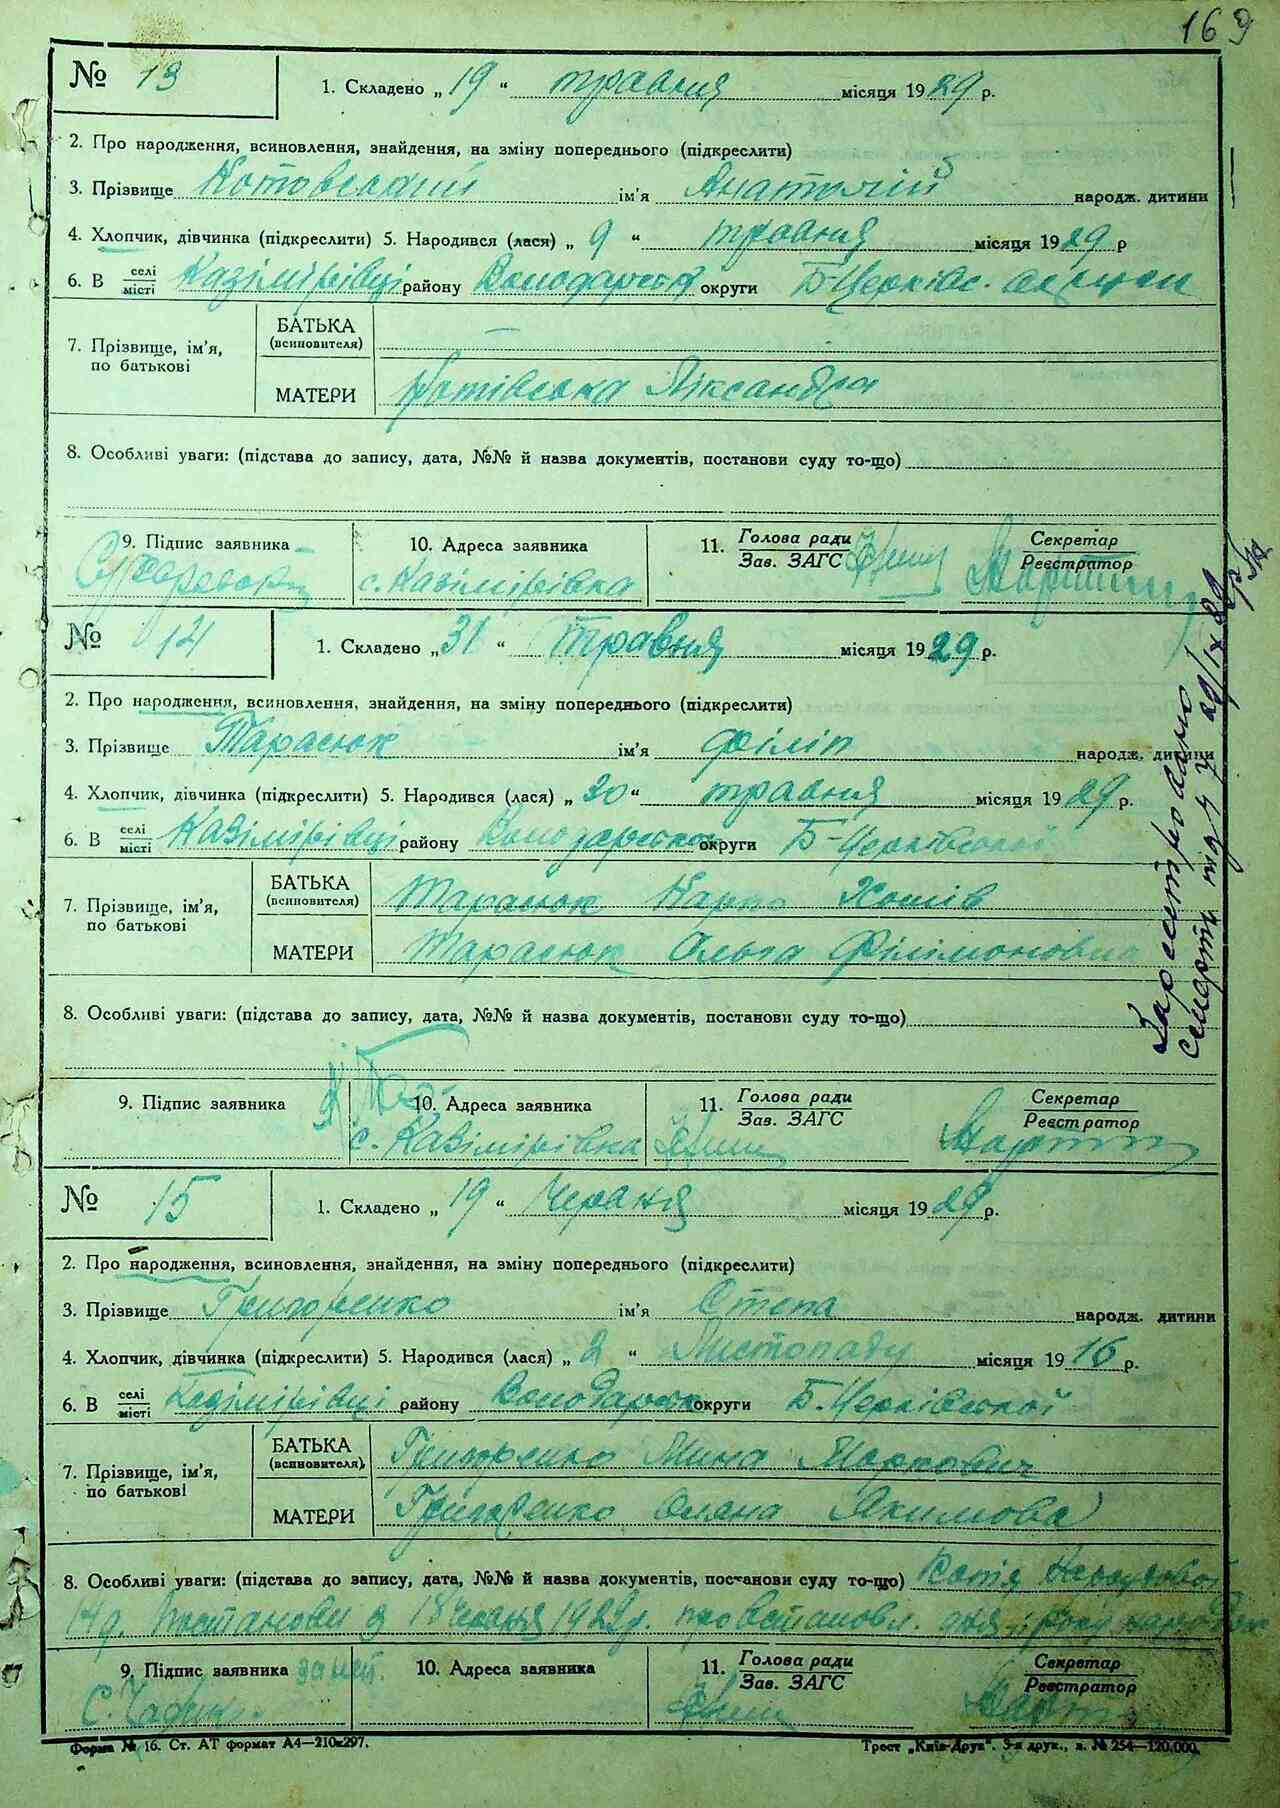 169
№ 13
1. Складено „19“ травня місяця 1929 р.
2. Про народження, всиновлення, знайдення, на зміну попереднього (підкреслити)
3. Прізвище Котовський ім'я Анатолій народж. дитини
4. Хлопчик, дівчинка (підкреслити) 5. Народився (лася) „9“ травня місяця 1929 р
6. В селі місті Казімірівці району Володарськ округи Б-Церківс.
7. Прізвище, ім'я, по батькові
БАТЬКА (всиновителя)
МАТЕРИ Котівська Лександра
8. Особливі уваги: (підстава до запису, дата, №№ й назва документів, постанови суду то-що)
9. Підпис заявника
10. Адреса заявника
с. Казімірівка
11. Голова ради
Зав. ЗАГС
Секретар
Реєстратор
№ 14
1. Складено „31“ травня місяця 1929 р.
2. Про народження, всиновлення, знайдення, на зміну попереднього (підкреслити)
3. Прізвище Тарасюк ім'я Філіп народж. дитини
4. Хлопчик, дівчинка (підкреслити) 5. Народився (лася) „30“ травня місяця 1929 р.
6. В селі місті Казімірівці району Володарсько округи Б-Церківської
7. Прізвище, ім'я, по батькові
БАТЬКА (всиновителя) Тарасюк Карпо
МАТЕРИ Тарасюк Ольга Філімоновна
8. Особливі уваги: (підстава до запису, дата, №№ й назва документів, постанови суду то-що)
Зареєстровано
смерть під ч 7 29/IX 29 р
9. Підпис заявника
10. Адреса заявника
с. Казімірівка
11. Голова ради
Зав. ЗАГС
Секретар
Реєстратор
№ 15
1. Складено „19“ Червня місяця 1929 р.
2. Про народження, всиновлення, знайдення, на зміну попереднього (підкреслити)
3. Прізвище Григоренко ім'я Степа народж. дитини
4. Хлопчик, дівчинка (підкреслити) 5. Народився (лася) „2“ Листопаду місяця 1916 р.
6. В селі місті Казімірівці району Володарськ округи Б.Церківської
7. Прізвище, ім'я, по батькові
БАТЬКА (всиновителя) Григоренко Мина Маркович
МАТЕРИ Григоренко Оляна Якимова
8. Особливі уваги: (підстава до запису, дата, №№ й назва документів, постанови суду то-що) Копія
постанови з 18 червня 1929р. про встановл. дня і року народжен
9. Підпис заявника
10. Адреса заявника
11. Голова ради
Зав. ЗАГС
Секретар
Реєстратор
Форма № 16. Ст. АТ формат А4—210x297.
Трест „Київ-Друк“. 3-я друк., з. № 254—120.000.